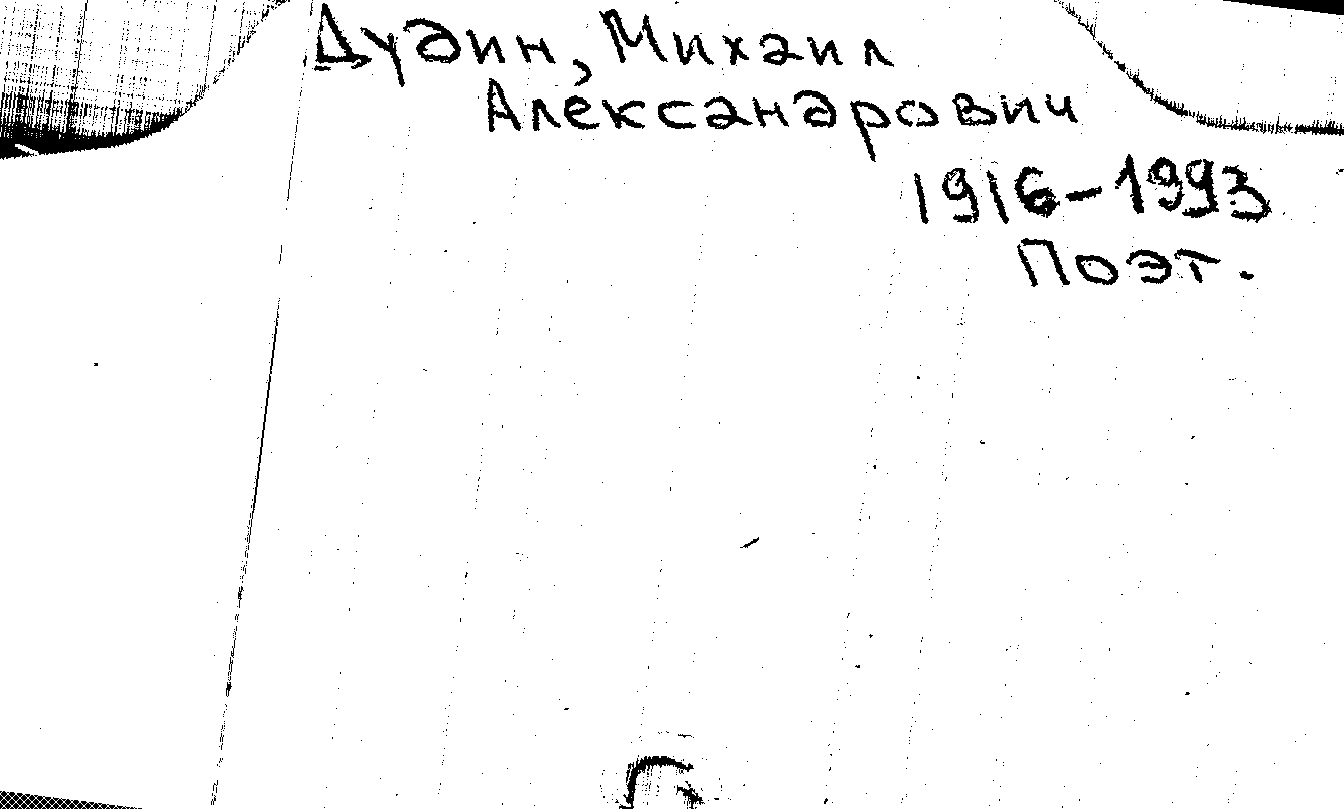 Дудин, Михаил
Александрович
1916-1993
Поэт.